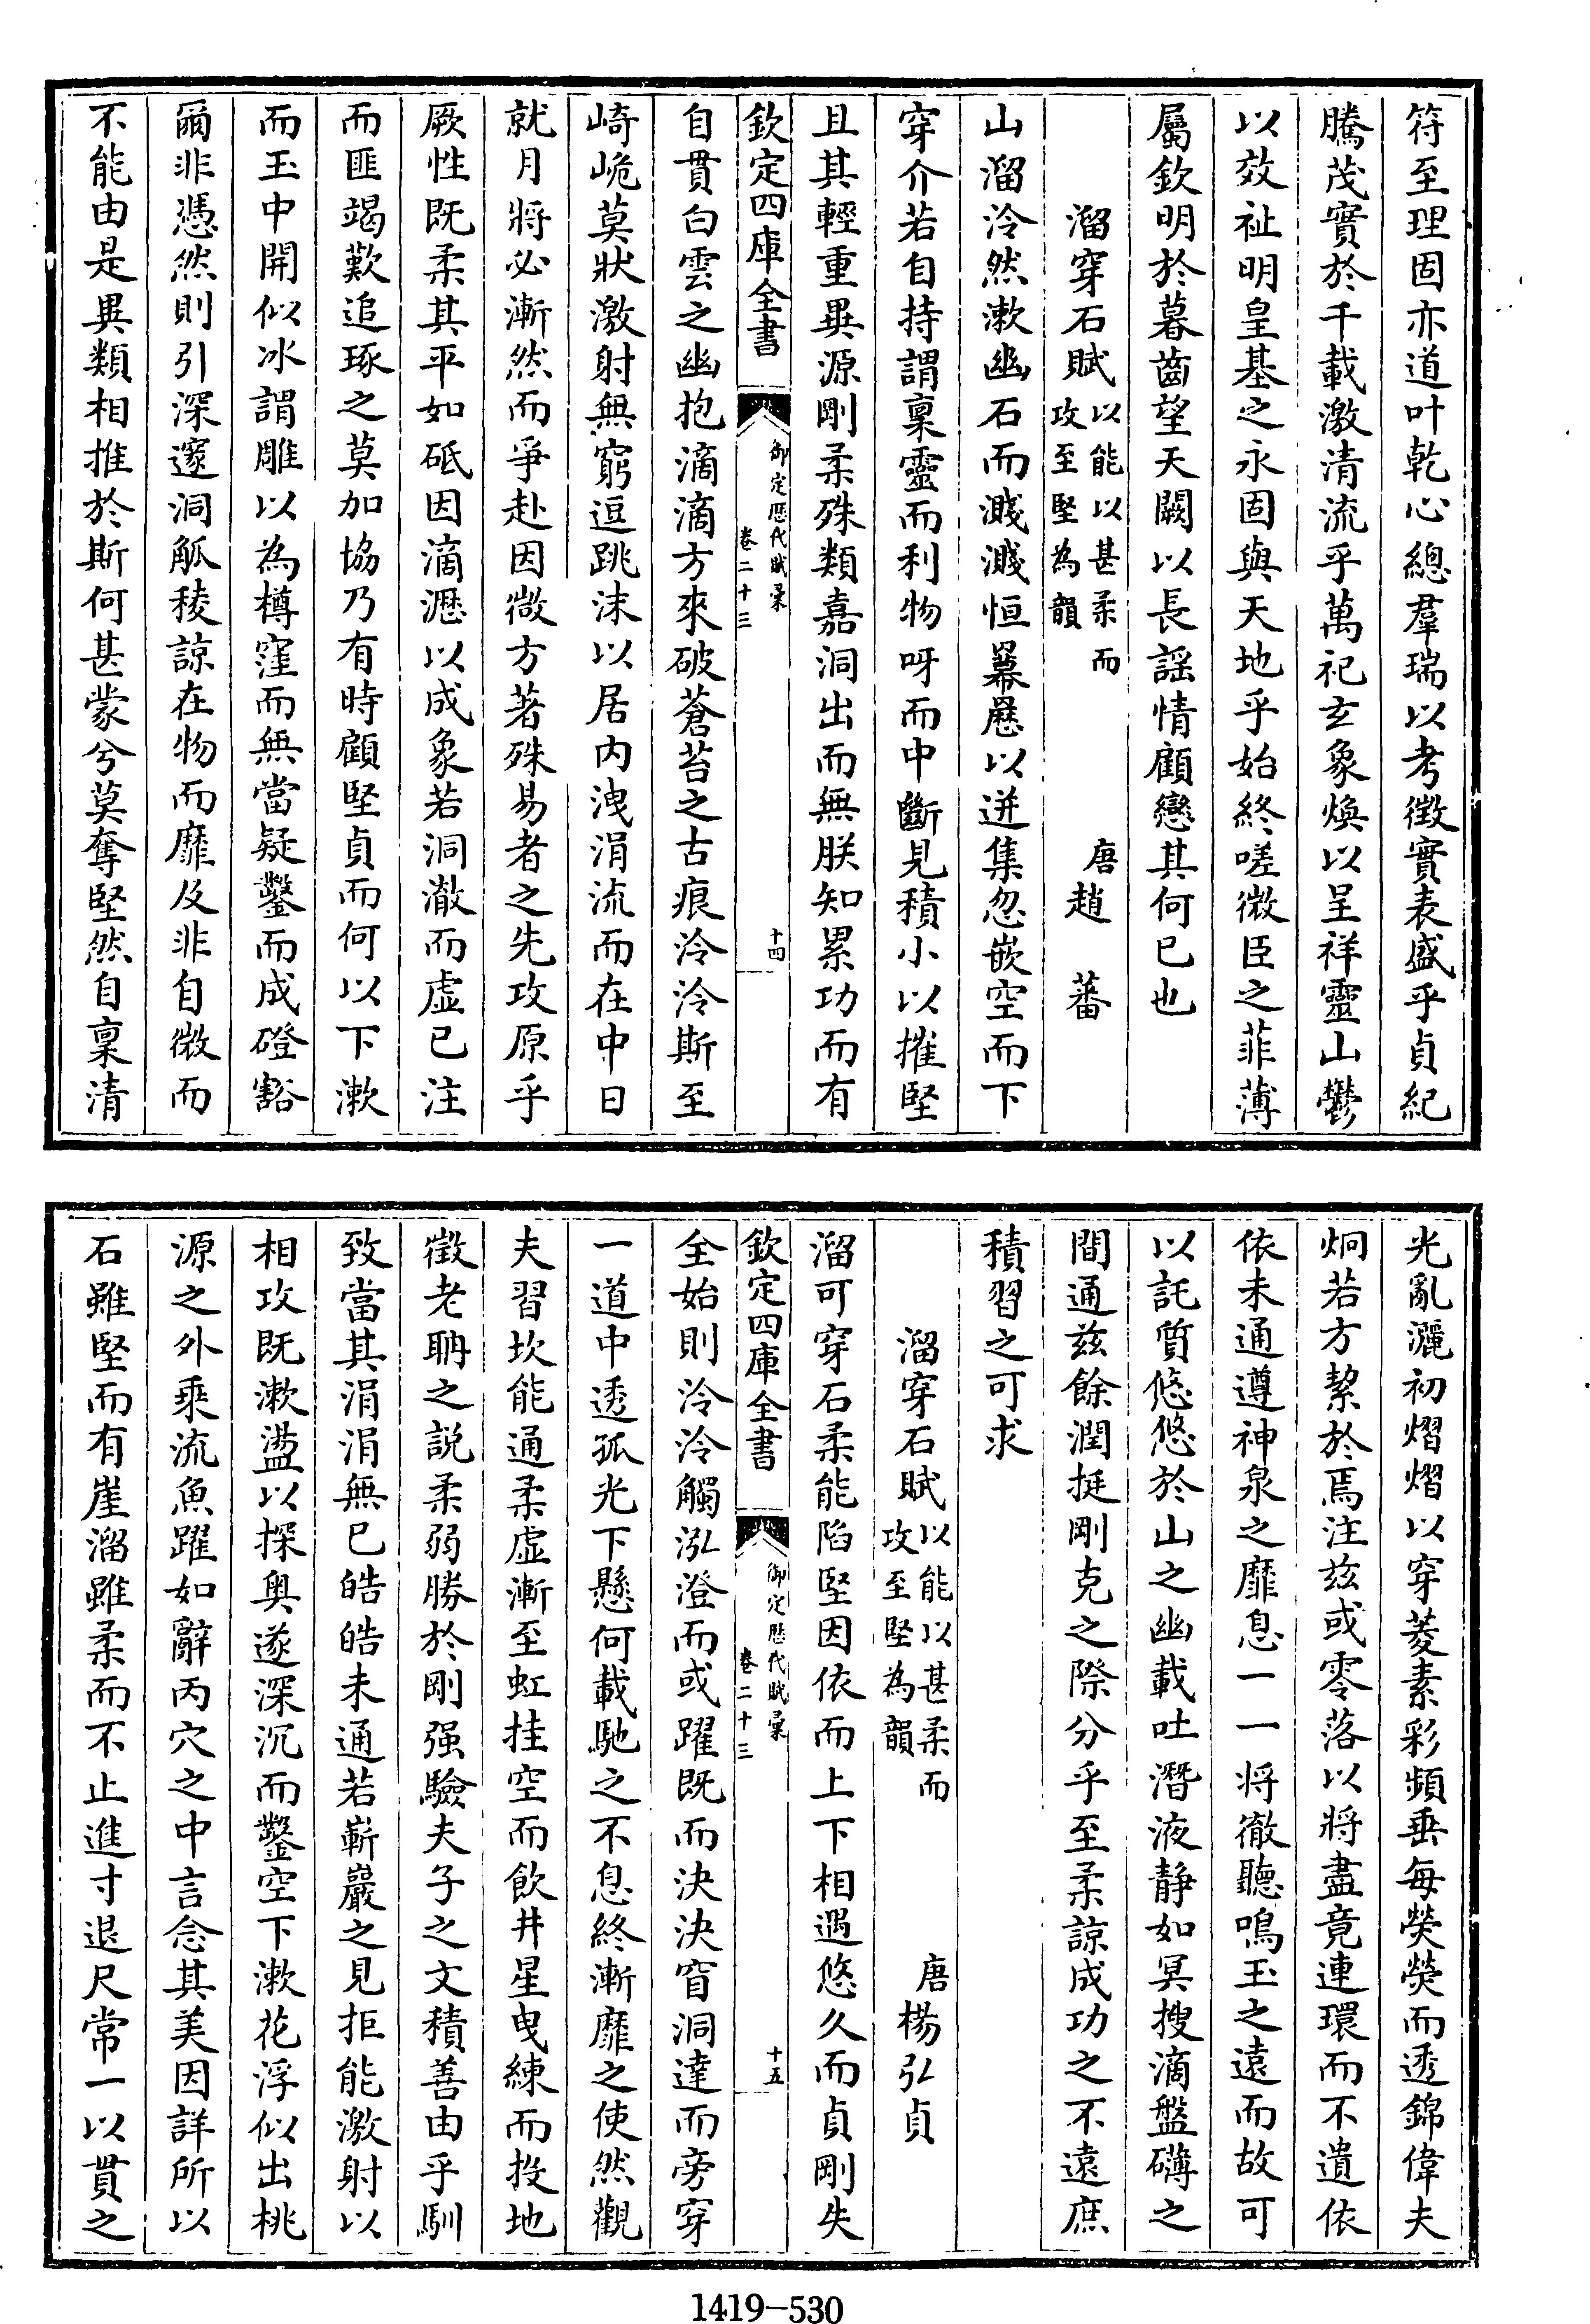 符至理固亦道叶乾心總羣瑞以考徵實表盛乎貞紀
騰茂實於千載激清流乎萬祀玄象煥以呈祥靈山鬱
以效祉明皇基之永固與天地乎始終嗟微臣之菲薄
屬欽明於暮齒望天闕以長謡情顧戀其何已也
溜穿石賦以能以甚柔而攻至堅為韻 唐趙蕃
山溜泠然漱幽石而濺濺恒羃㕒以迸集忽嵌空而下
穿介若自持謂稟靈而利物呀而中斷見積小以摧堅
且其輕重異源剛柔殊類嘉洞出而無朕知累功而有
欽定四庫全書 御定歴代賦彙 卷二十三 十四
自貫白雲之幽抱滴滴方來破蒼苔之古痕泠泠斯至
崎峗莫狀激射無窮逗跳沫以居内洩涓流而在中日
就月將必漸然而爭赴因微方著殊易者之先攻原乎
厥性既柔其平如砥因滴瀝以成象若洞澈而虚已注
而匪竭歎追琢之莫加協乃有時顧堅貞而何以下漱
而玉中開似冰謂雕以為樽窪而無當疑鑿而成磴豁
爾非憑然則引深邃洞觚稜諒在物而靡及非自微而
不能由是異類相推於斯何甚蒙兮莫奪堅然自稟清
光亂灑初熠熠以穿菱素彩頻垂每熒熒而透錦偉夫
炯若方挈於焉注兹或零落以將盡竟連環而不遺依
依未通遵神泉之靡息一一將徹聽鳴玉之遠而故可
以託質悠悠於山之幽載吐潛液静如冥搜滴盤礴之
間通兹餘潤挺剛克之際分乎至柔諒成功之不遠庶
積習之可求
溜穿石賦以能以甚柔而攻至堅為韻 唐楊弘貞
溜可穿石柔能陷堅因依而上下相遇悠久而貞剛失
欽定四庫全書 御定歴代賦彙 卷二十三 十五
全始則泠泠觸泓澄而或躍既而決決窅洞達而旁穿
一道中透孤光下懸何載馳之不息終漸靡之使然觀
夫習坎能通柔虚漸至虹挂空而飲井星曳練而投地
徵老聃之説柔弱勝於剛强驗夫子之文積善由乎馴
致當其涓涓無已皓皓未通若嶄巖之見拒能激射以
相攻既漱盪以探奥遂深沉而鑿空下漱花浮似出桃
源之外乘流魚躍如辭丙穴之中言念其美因詳所以
石雖堅而有崖溜雖柔而不止進寸退尺常一以貫之
1419-530